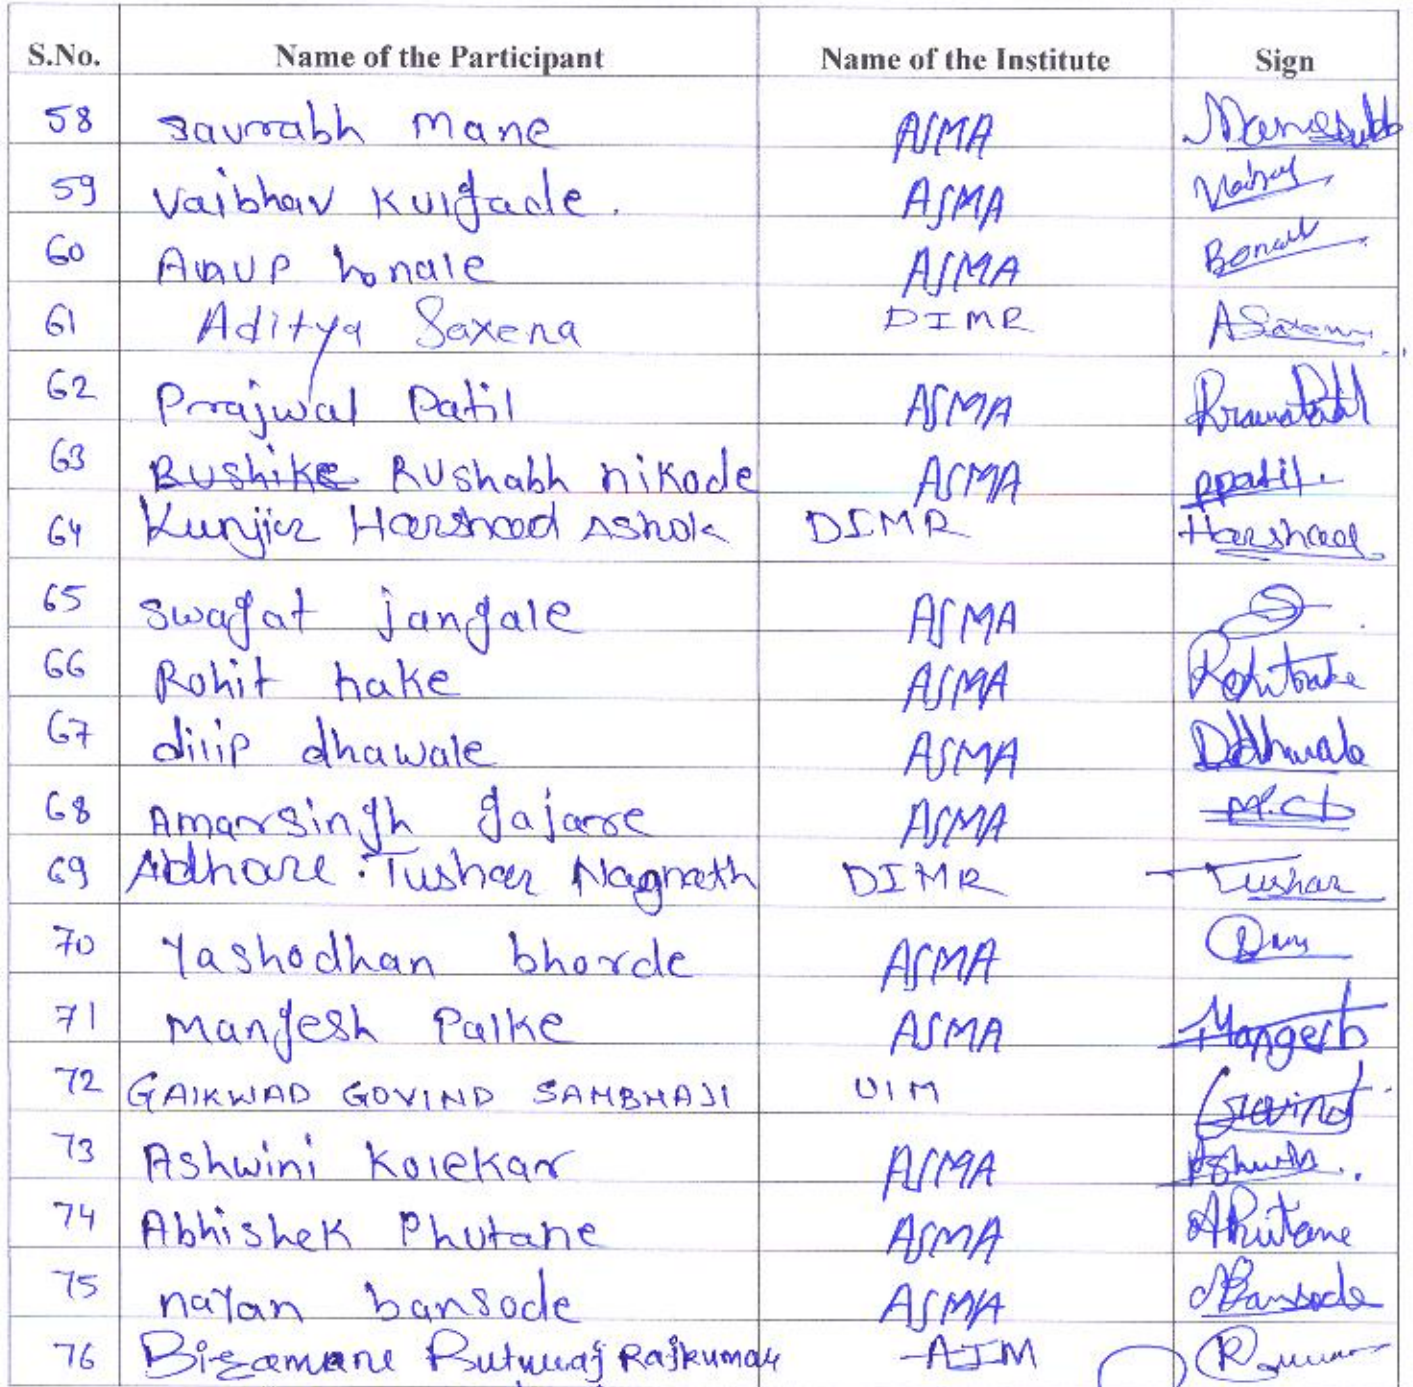 S.No. Name of the Participant Name of the Institute Sign
58 Saurabh Mane ASMA
59 Vaibhav Kuigade. ASMA
60 Anup honale ASMA
61 Aditya Saxena DIMR ASaxena
62 Prajwal Patil ASMA
63 Rushike Rushabh nikode ASMA ppatil.
64 Kunjir Harshad Ashok DIMR Harshad
65 Swagat jangale ASMA
66 Rohit hake ASMA Rohithake
67 dilip dhawale ASMA Ddhawale
68 Amarsingh gajare ASMA
69 Adhare Tushar Nagnath DIMR Tushar
70 Yashodhan bhorde ASMA
71 Mangesh Palke ASMA Mangesh
72 GAIKWAD GOVIND SAMBHAJI UIM Govind
73 Ashwini Kolekar ASMA
74 Abhishek Phutane ASMA APhutane
75 nayan bansode ASMA NBansode
76 Rajkumar AIM